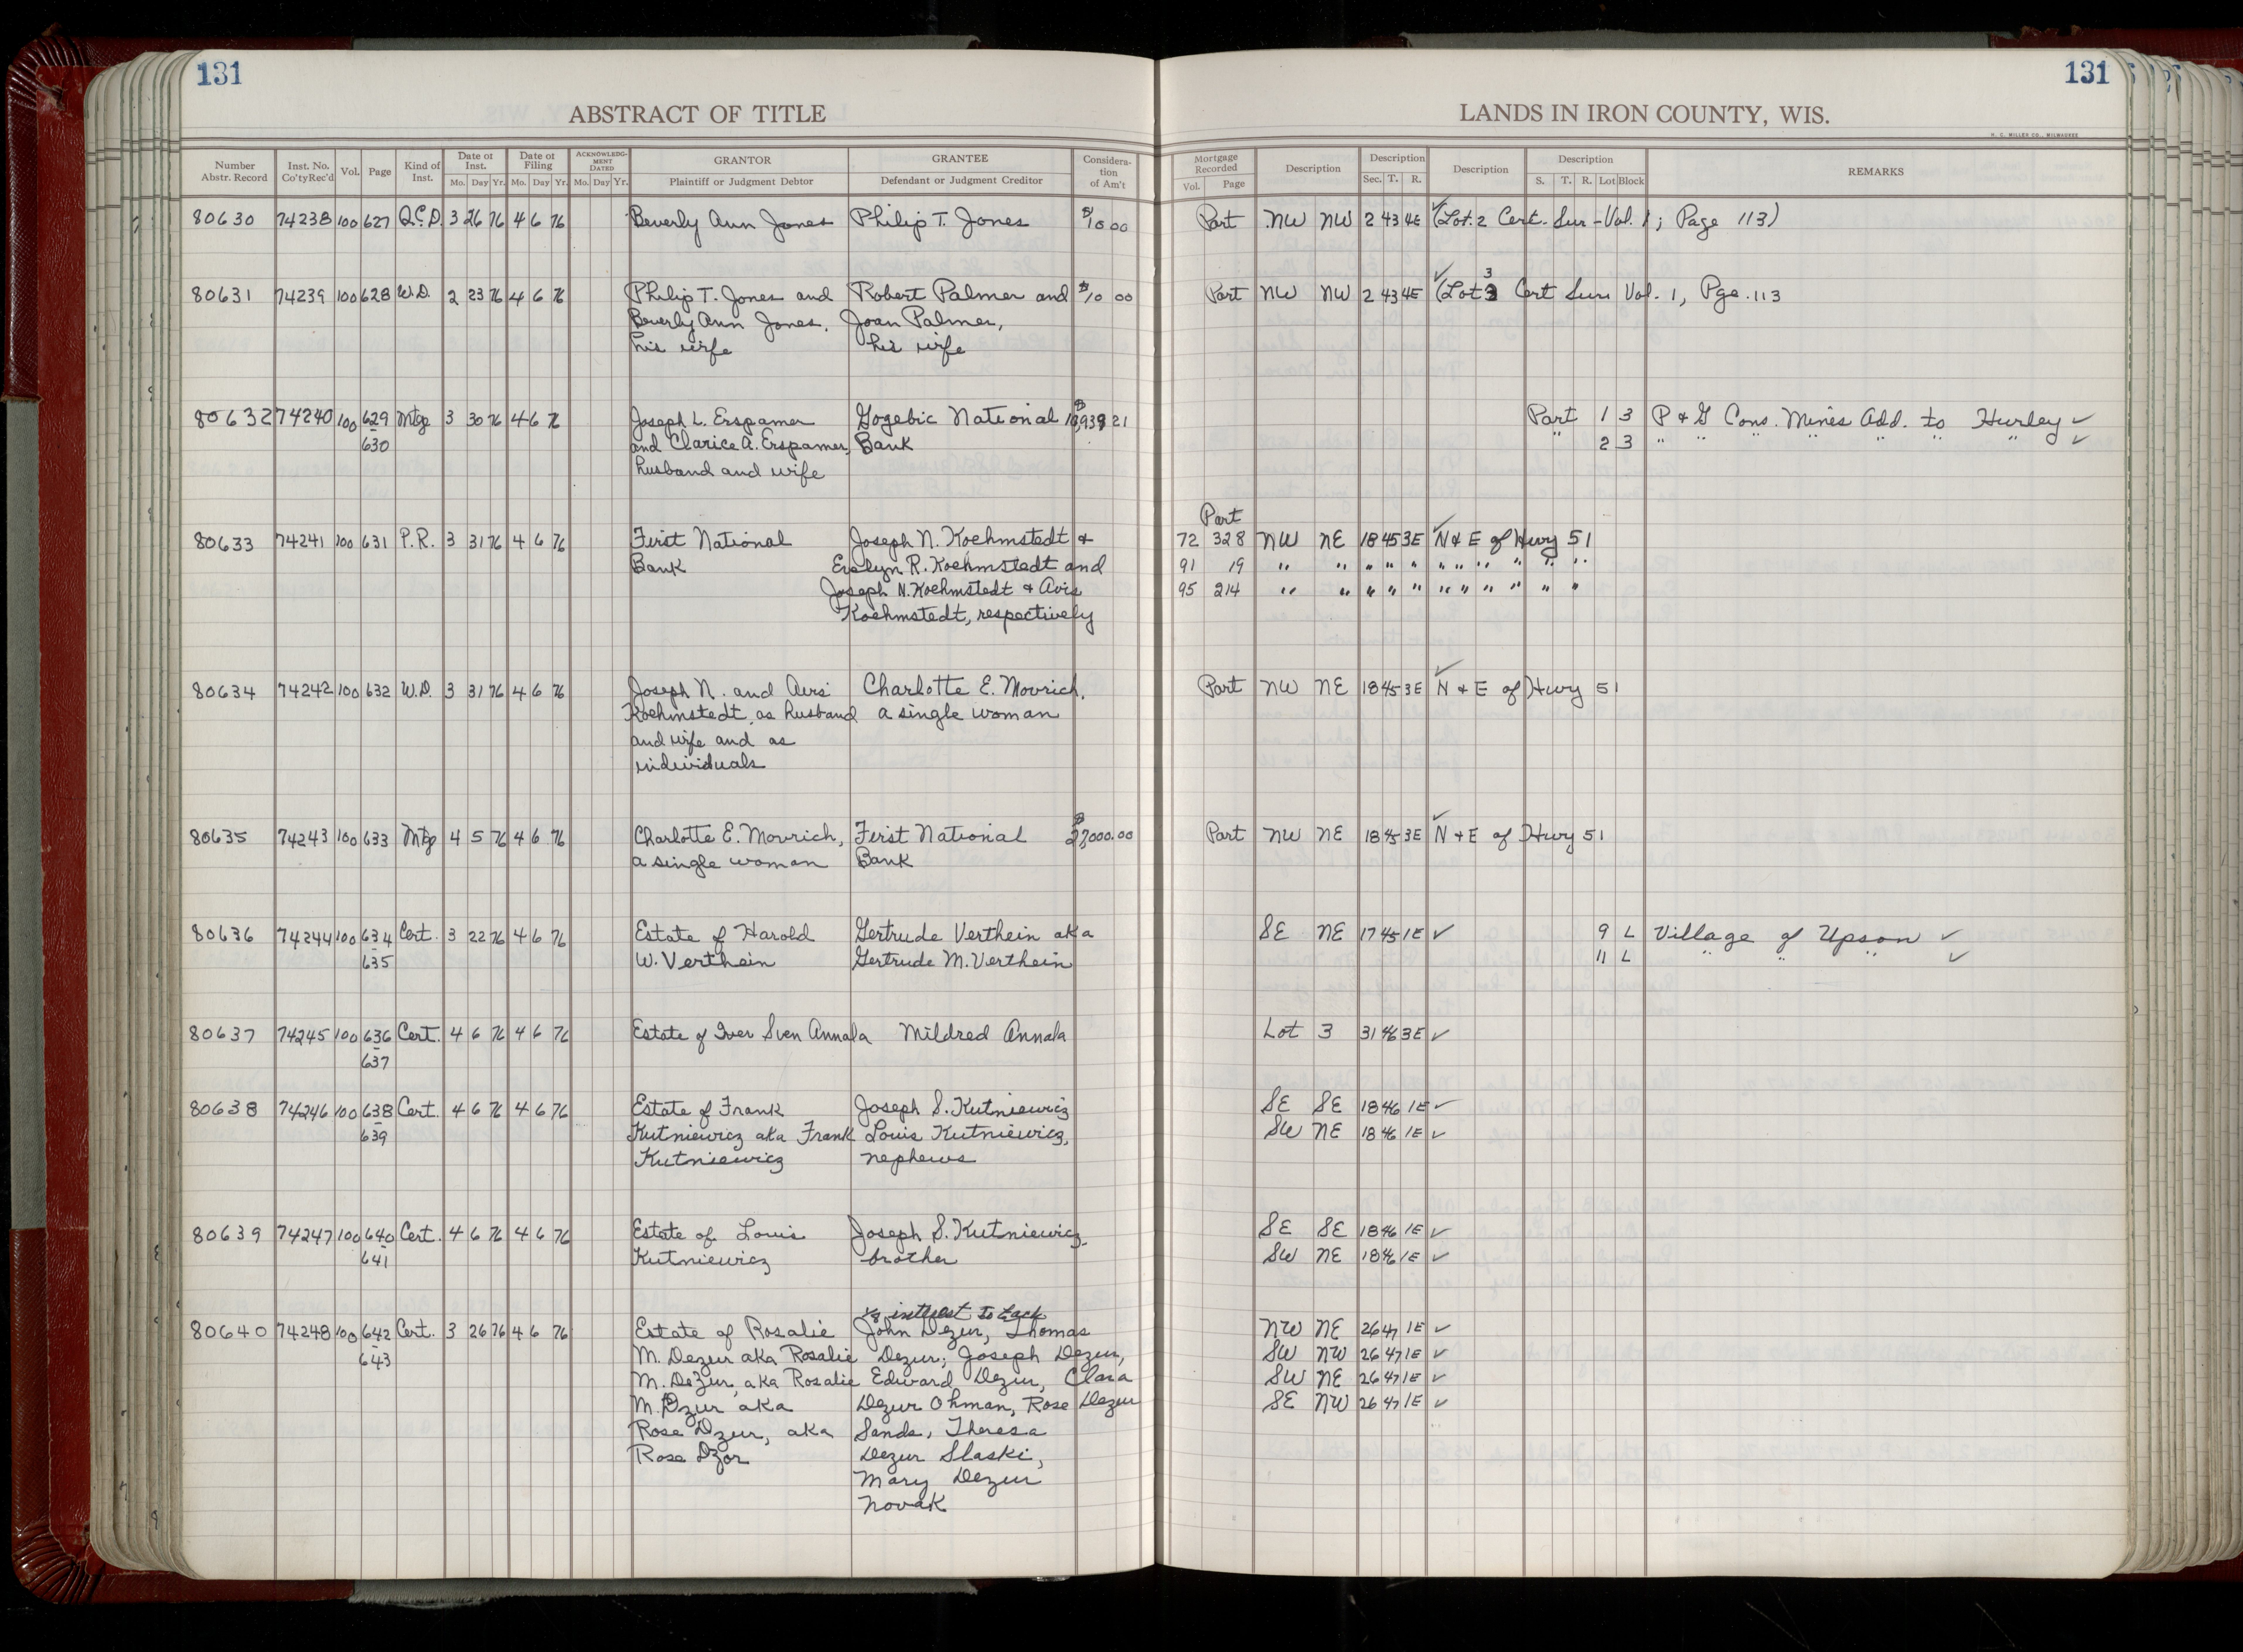 131
131
ABSTRACT OF TITLE
LANDS IN IRON COUNTY, WIS.
H. C. MILLER CO., MILWAUKEE
Number Abstr. Record | Inst. No. Co'ty Rec'd | Vol. | Page | Kind of Inst. | Date of Inst. Mo. Day Yr. | Date of Filing Mo. Day Yr. | ACKNOWLEDGMENT DATED Mo. Day Yr. | GRANTOR Plaintiff or Judgment Debtor | GRANTEE Defendant or Judgment Creditor | Consideration of Am't | Mortgage Recorded Vol. Page | Description | Description Sec. T. R. | Description | Description S. T. R. Lot Block | REMARKS
80630 74238 100 627 Q.C.D. 3 26 76 4 6 76 Beverly Ann Jones Philip T. Jones $10 00 Part NW NW 2 43 4E ✓ (Lot 2 Cert. Sur - Vol. 1; Page 113)
80631 74239 100 628 W.D. 2 23 76 4 6 76 Philip T. Jones and Robert Palmer and $10 00 Part NW NW 2 43 4E ✓ (Lot 3 Cert Sur Vol. 1, Pge. 113
Beverly Ann Jones, Joan Palmer,
his wife his wife
80632 74240 100 629 Mtge 3 30 76 4 6 76 Joseph L. Erspamer Gogebic National Part 1 3 P & G Cons. Mines Add. to Hurley ✓
- 630 and Clarice A. Erspamer, Bank " 2 3 " " " " " " ✓
husband and wife
Part
80633 74241 100 631 P.R. 3 31 76 4 6 76 First National Joseph N. Koehmstedt & 72 328 NW NE 18 45 3E ✓ N & E of Hwy 51
Bank Evelyn R. Koehmstedt and 91 19 " " " " " " " " " " "
Joseph N. Koehmstedt & Avis 95 214 " " " " " " " " " " "
Koehmstedt, respectively
80634 74242 100 632 W.D. 3 31 76 4 6 76 Joseph N. and Avis Charlotte E. Movrich, Part NW NE 18 45 3E ✓ N & E of Hwy 51
Koehmstedt, as husband a single woman
and wife and as
individuals
80635 74243 100 633 Mtg 4 5 76 4 6 76 Charlotte E. Movrich, First National $27,000.00 Part NW NE 18 45 3E ✓ N & E of Hwy 51
a single woman Bank
80636 74244 100 634 Cert. 3 22 76 4 6 76 Estate of Harold Gertrude Verthein aka SE NE 17 45 1E ✓ 9 L Village of Upson ✓
- 635 W. Verthein Gertrude M. Verthein 11 L " " " ✓
80637 74245 100 636 Cert. 4 6 76 4 6 76 Estate of Iver Sven Annala Mildred Annala Lot 3 31 46 3E ✓
- 637
80638 74246 100 638 Cert. 4 6 76 4 6 76 Estate of Frank Joseph S. Kutniewicz SE SE 18 46 1E ✓
- 639 Kutniewicz aka Frank Louis Kutniewicz, SW NE 18 46 1E ✓
Kutniewicz nephews
80639 74247 100 640 Cert. 4 6 76 4 6 76 Estate of Louis Joseph S. Kutniewicz SE SE 18 46 1E ✓
- 641 Kutniewicz brother SW NE 18 46 1E ✓
1/8 interest to each
80640 74248 100 642 Cert. 3 26 76 4 6 76 Estate of Rosalie John Dezur, Thomas NW NE 26 47 1E ✓
- 643 M. Dezur aka Rosalie Dezur, Joseph Dezur, SW NW 26 47 1E ✓
M. DeZur, aka Rosalie Edward Dezur, Clara SW NE 26 47 1E ✓
M. Dzur aka Dezur Ohman, Rose Dezur SE NW 26 47 1E ✓
Rose Dzur, aka Sands, Theresa
Rose Dzor Dezur Slaski,
Mary Dezur
Novak